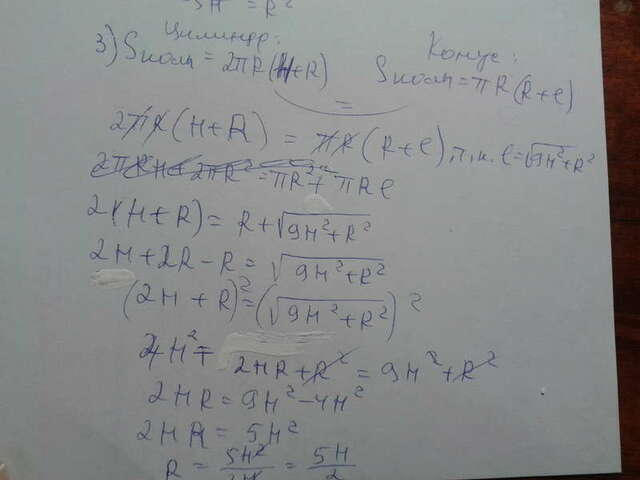 5H = R²
3) Цилиндр: Sполн = 2πR(H+R)
Конус: Sполн = πR(R+l)
=
2πR(H+R) = πR(R+l), т.к. l = √9H²+R²
2(H+R) = R+√9H²+R²
2H+2R-R = √9H²+R²
(2H+R)² = (√9H²+R²)²
4H² + 2HR+R² = 9H²+R²
2HR = 9H²-4H²
2HR = 5H²
R = 5H²/2H = 5H/2